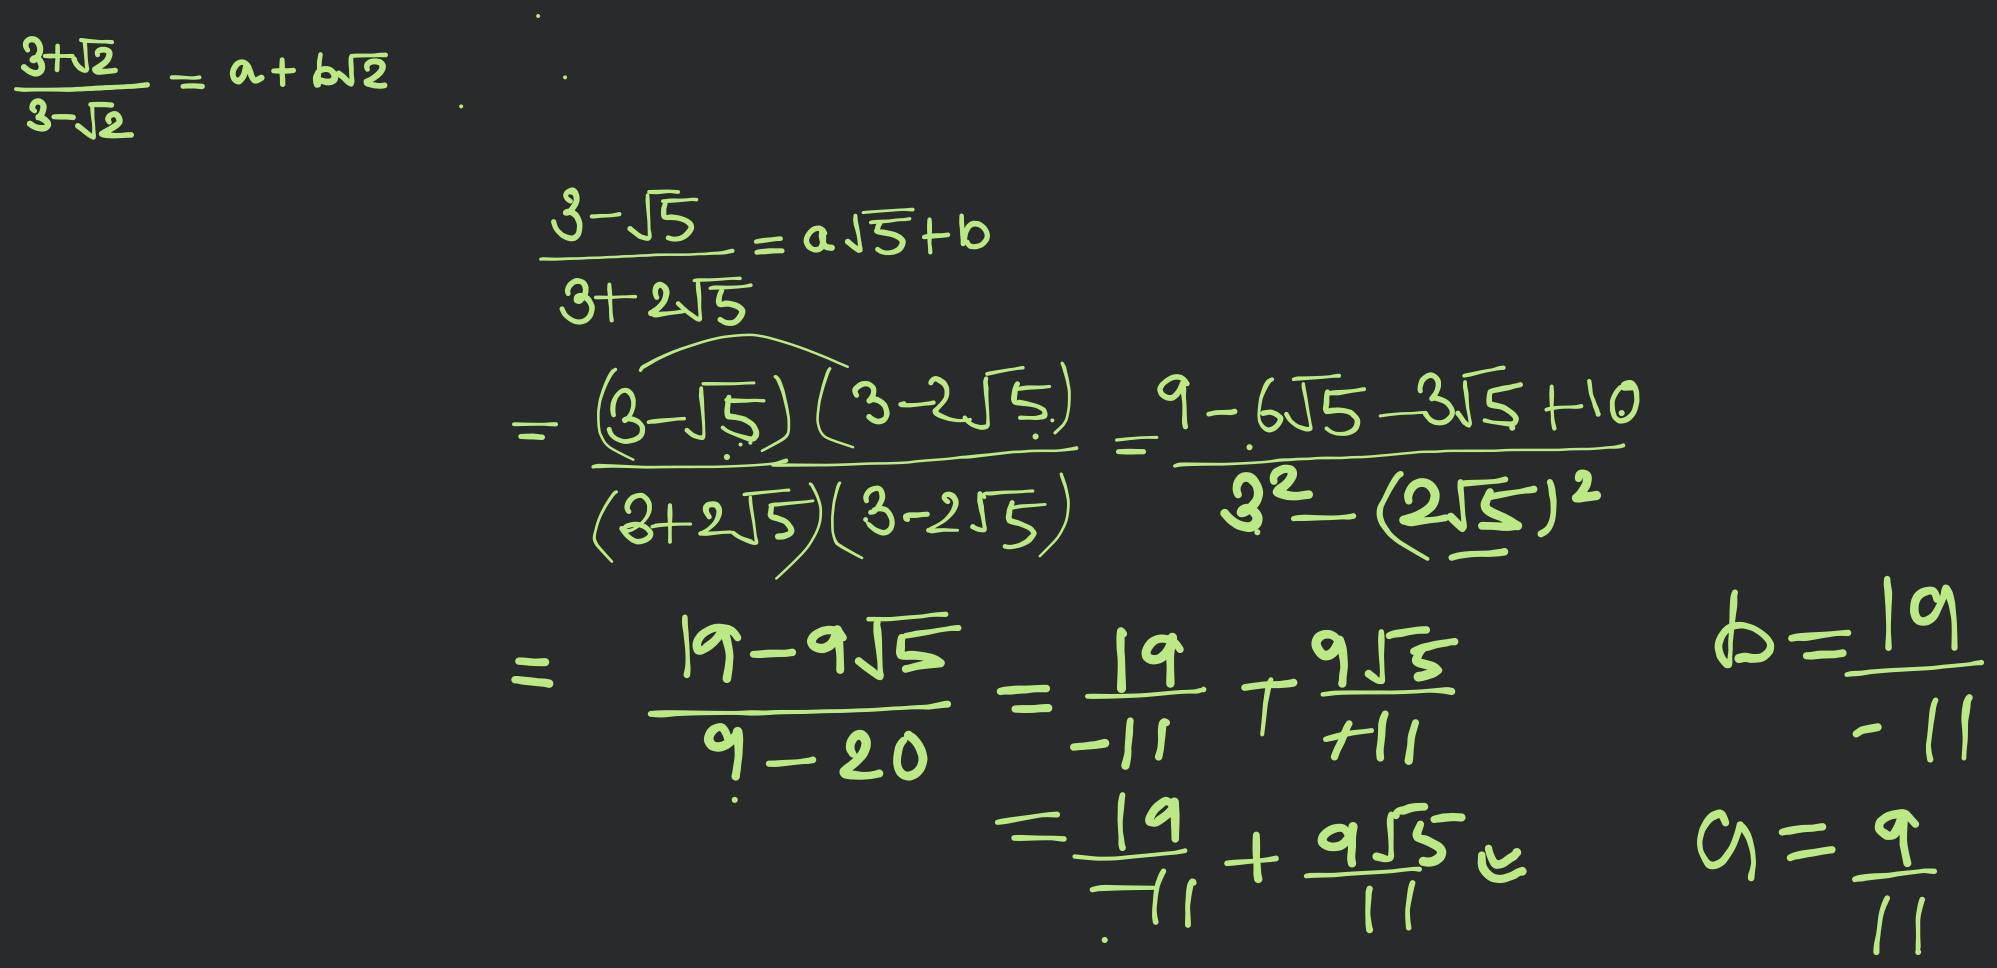 (3+√2)/(3-√2) = a + b√2
(3-√5)/(3+2√5) = a√5+b
= (3-√5)(3-2√5)/(3+2√5)(3-2√5) = (9-6√5-3√5+10)/(3²-(2√5)²)
= (19-9√5)/(9-20) = 19/-11 + 9√5/+11
b = 19/-11
= 19/-11 + 9√5/11
a = 9/11